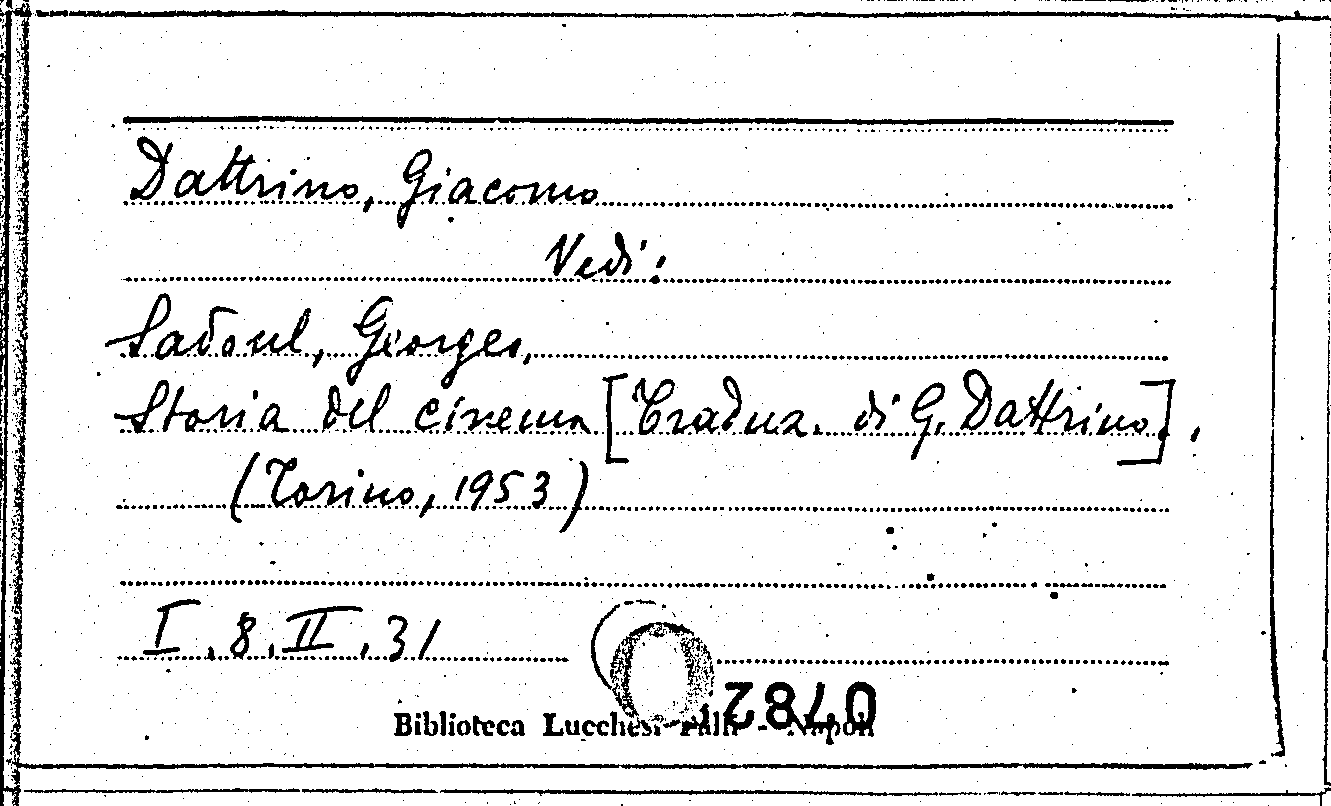 Dattrino, Giacomo
Vedi:
Sadoul, Georges,
Storia del cinema [Traduz. di G. Dattrino],
(Torino, 1953)
I.8.II.31
Biblioteca Lucchesi Palli - Napoli